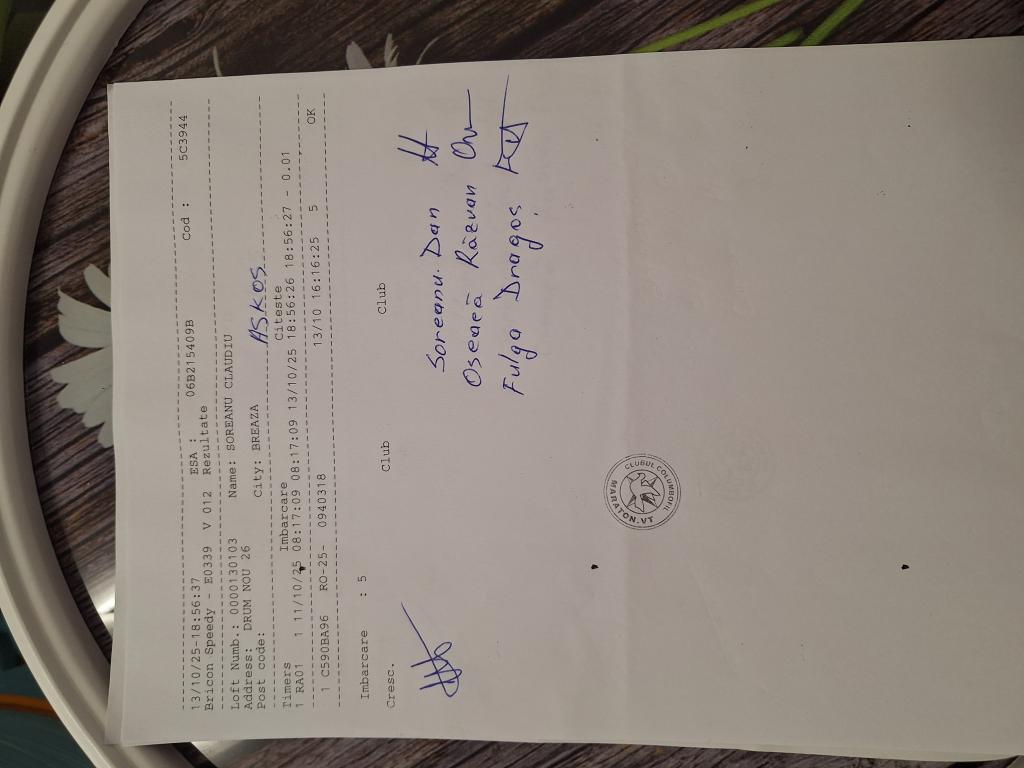 13/10/25-18:56:37 ESA : 06B215409B Cod : 5C3944
Bricon Speedy E0339 V 012 Rezultate
Loft Numb.: 0000130103 Name: SOREANU CLAUDIU
Address: DRUM NOU 26
Post code: City: BREAZA ASKOS
Timers Imbarcare Citeste
1 RA01 1 11/10/25 08:17:09 08:17:09 13/10/25 18:56:26 18:56:27 - 0.01
1 C590BA96 RO-25- 0940318 13/10 16:16:25 5 OK
Imbarcare : 5
Cresc. Club Club
Soreanu Dan
Răzvan
Fulga Dragoș
CLUBUL COLUMBOFIL
MARATON.VT